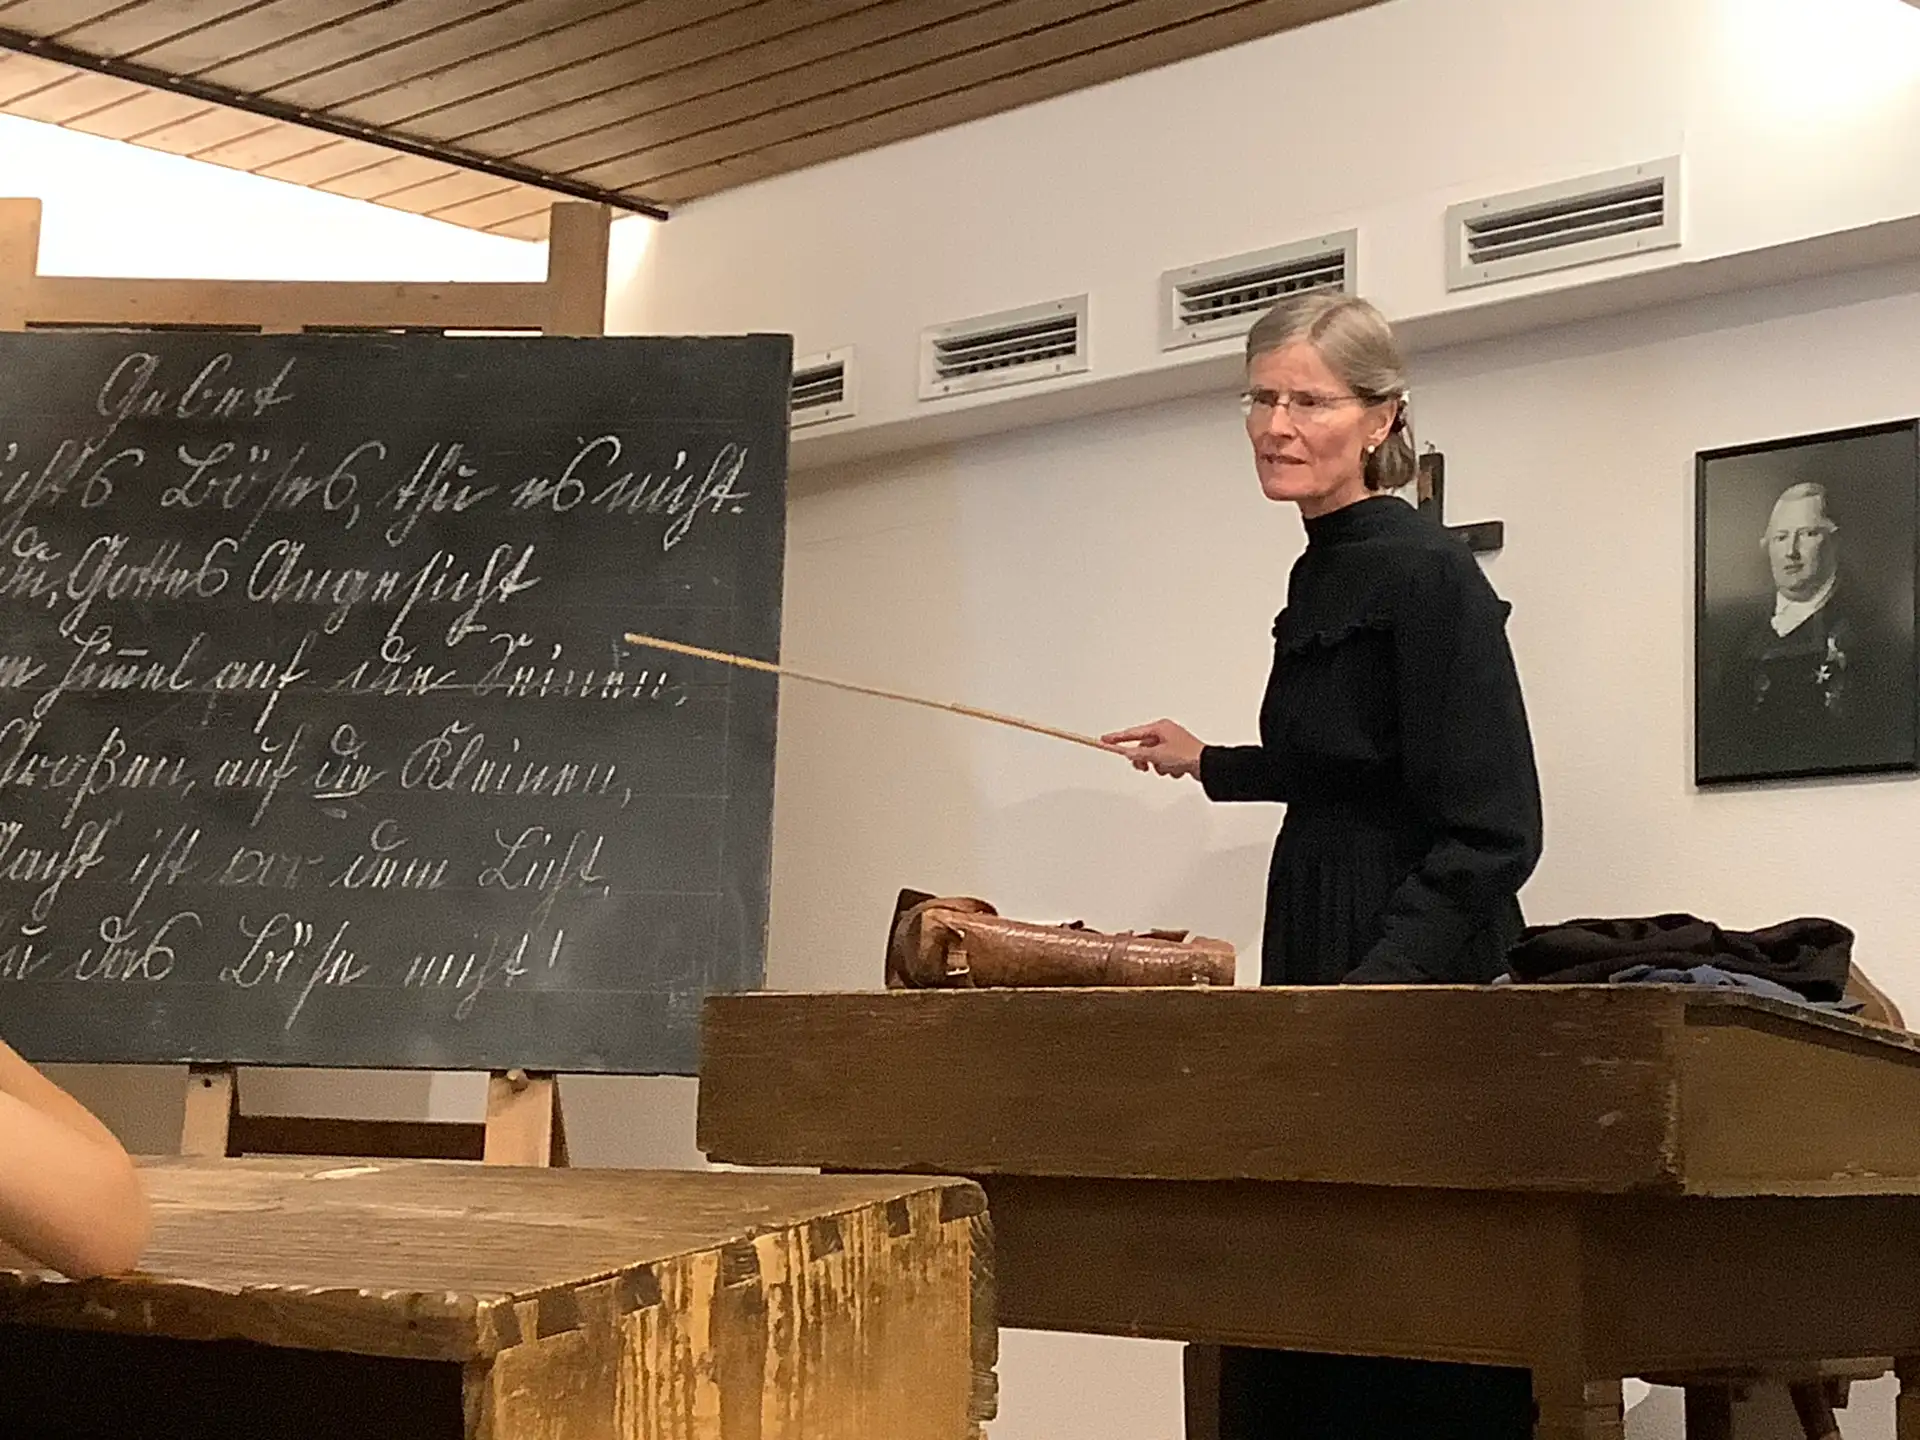 Gebet
Böses, thu es nicht.
du, Gottes Angesicht
Himmel auf die Seinen,
Großen, auf die Kleinen,
Nacht ist vor dem Licht.
das Böse nicht!